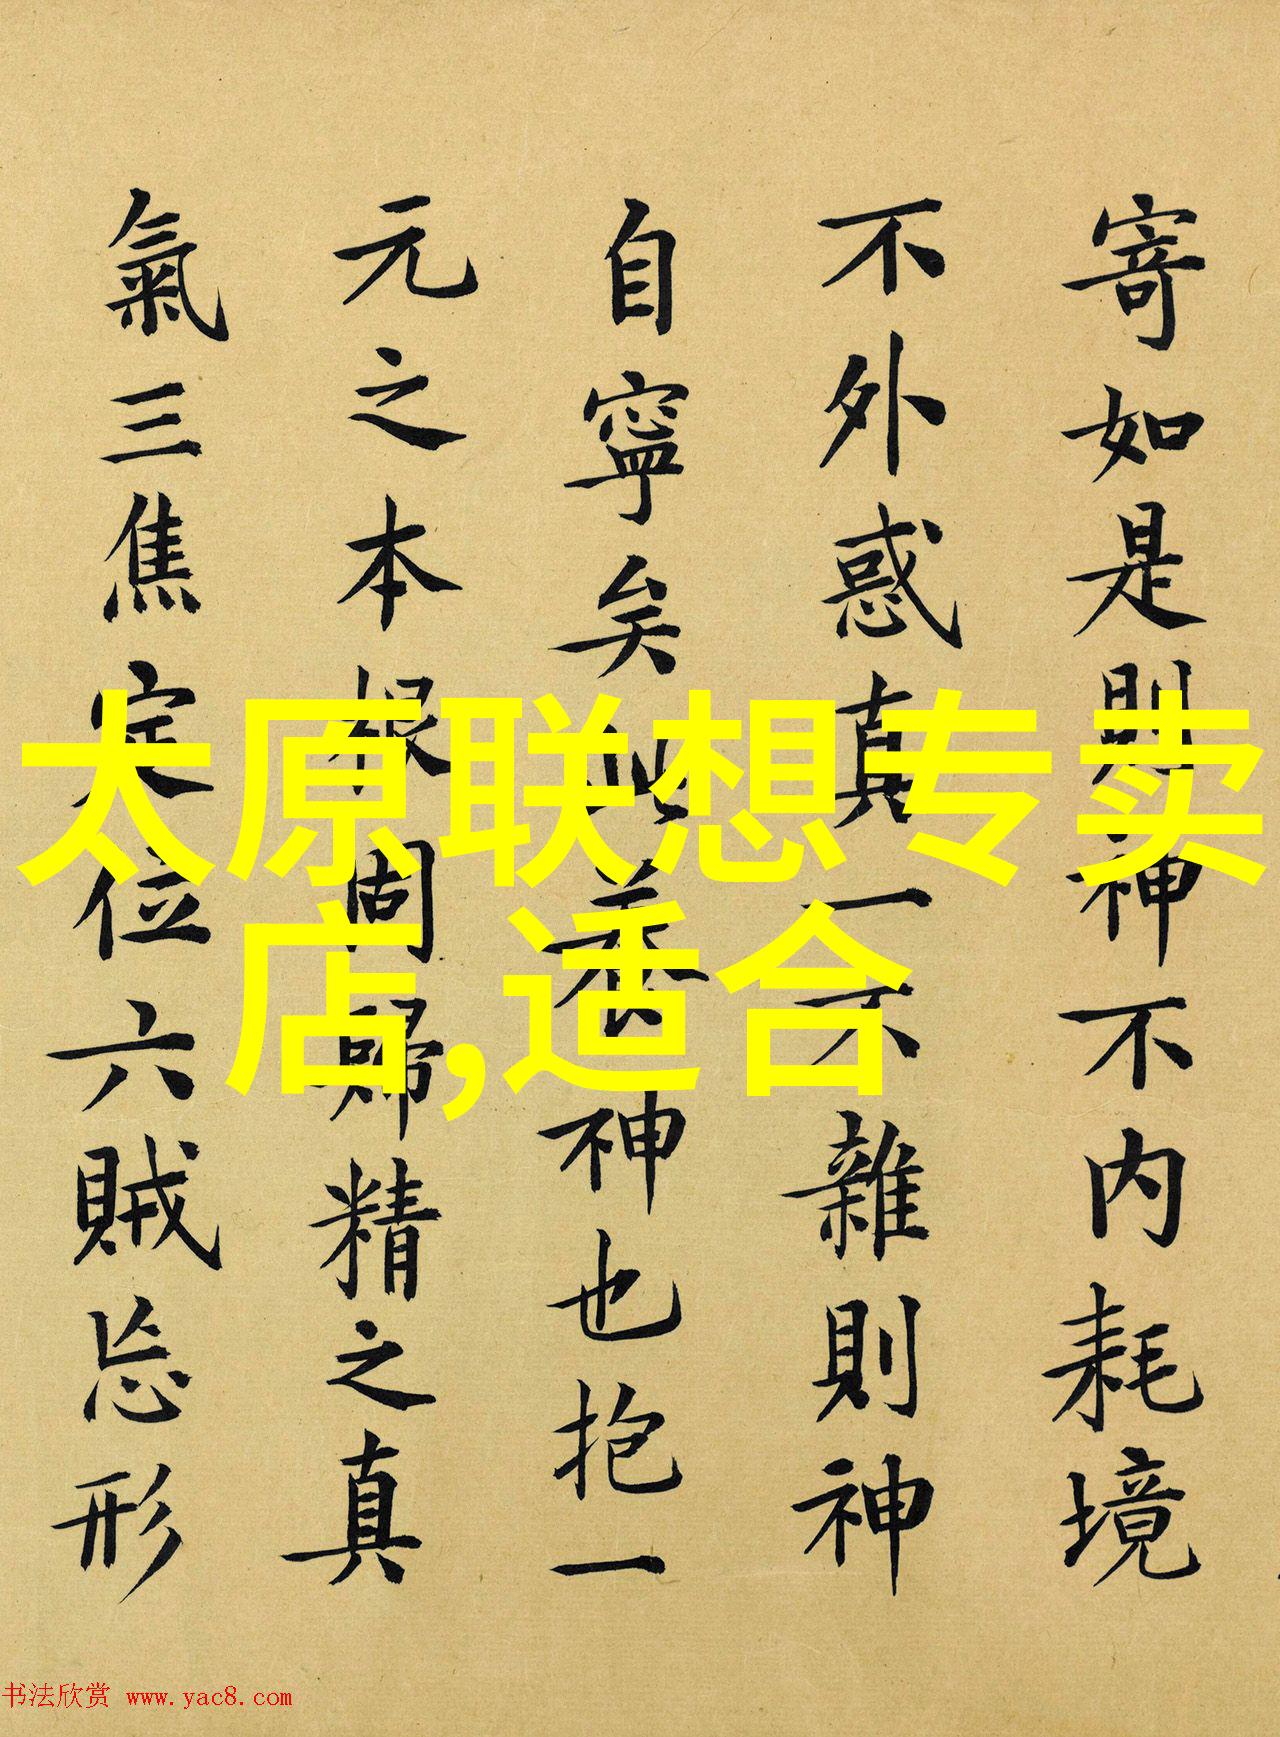 寄如是則神不内耗境
不外惑真一不雜則神
自寧矣此養神也抱一
元之本根固歸精之真
氣三焦定位六賊忘形
太原联想专卖
店,适合
书法欣赏 www.yac8.com